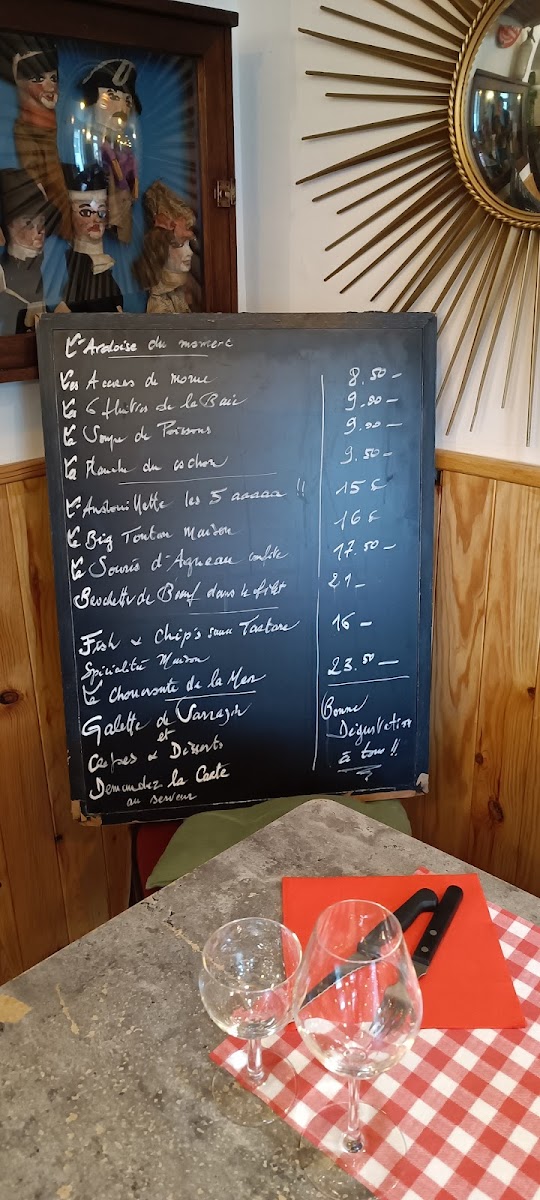 L'Ardoise du moment
Les Accras de morue 8.50 -
Les 6 fhitres de la Baie 9.00 -
La Soupe de Poissons 9.00 -
La Planche du cochon 9.50 -
L'Andouillette les 5 aaaaa !! 15 €
Le Big Tonton Maison 16 €
La Souris d'Agneau confite 17.50 -
Brochette de Bœuf dans le filet 21 -
Fish & Chip's sauce Tartare 16 -
Spécialité Maison
La Choucroute de la Mer 23.50 -
Galette de Sarrazin
et
Crêpes & Desserts
Demandez la Carte
au serveur
Bonne
Dégustation
à tous !!